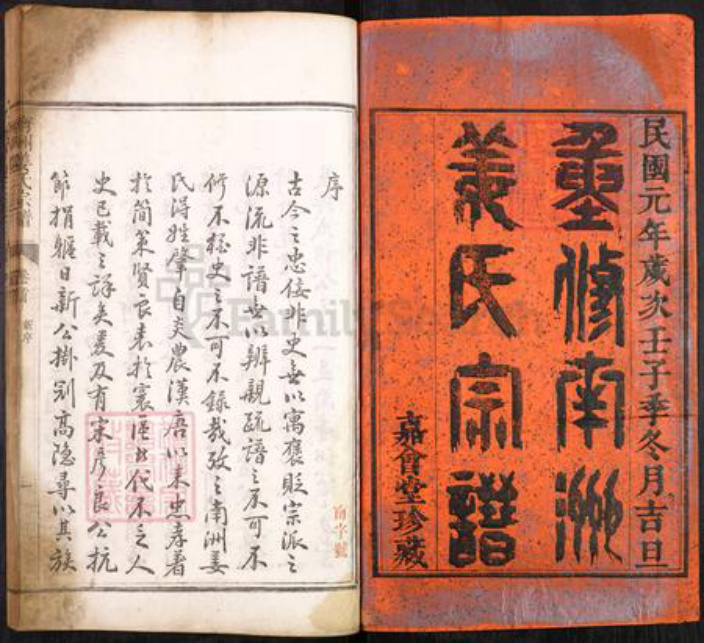 民國元年歲次壬子季冬月吉旦
重修南洲
姜氏宗譜
嘉會堂珍藏
序
古今之忠佞非史無以寓褒貶宗派之
源流非譜無以辨親疏譜之不可不
修不猶史之不可不錄哉攷之南洲姜
氏得姓肇自炎農漢唐以來忠孝著
於簡策賢良表於寰區代不乏人
史已載之詳矣爰及有宋彥良公抗
節捐軀日新公掛冠高隱尋以其族
角字號
姜氏宗譜
FamilySearch